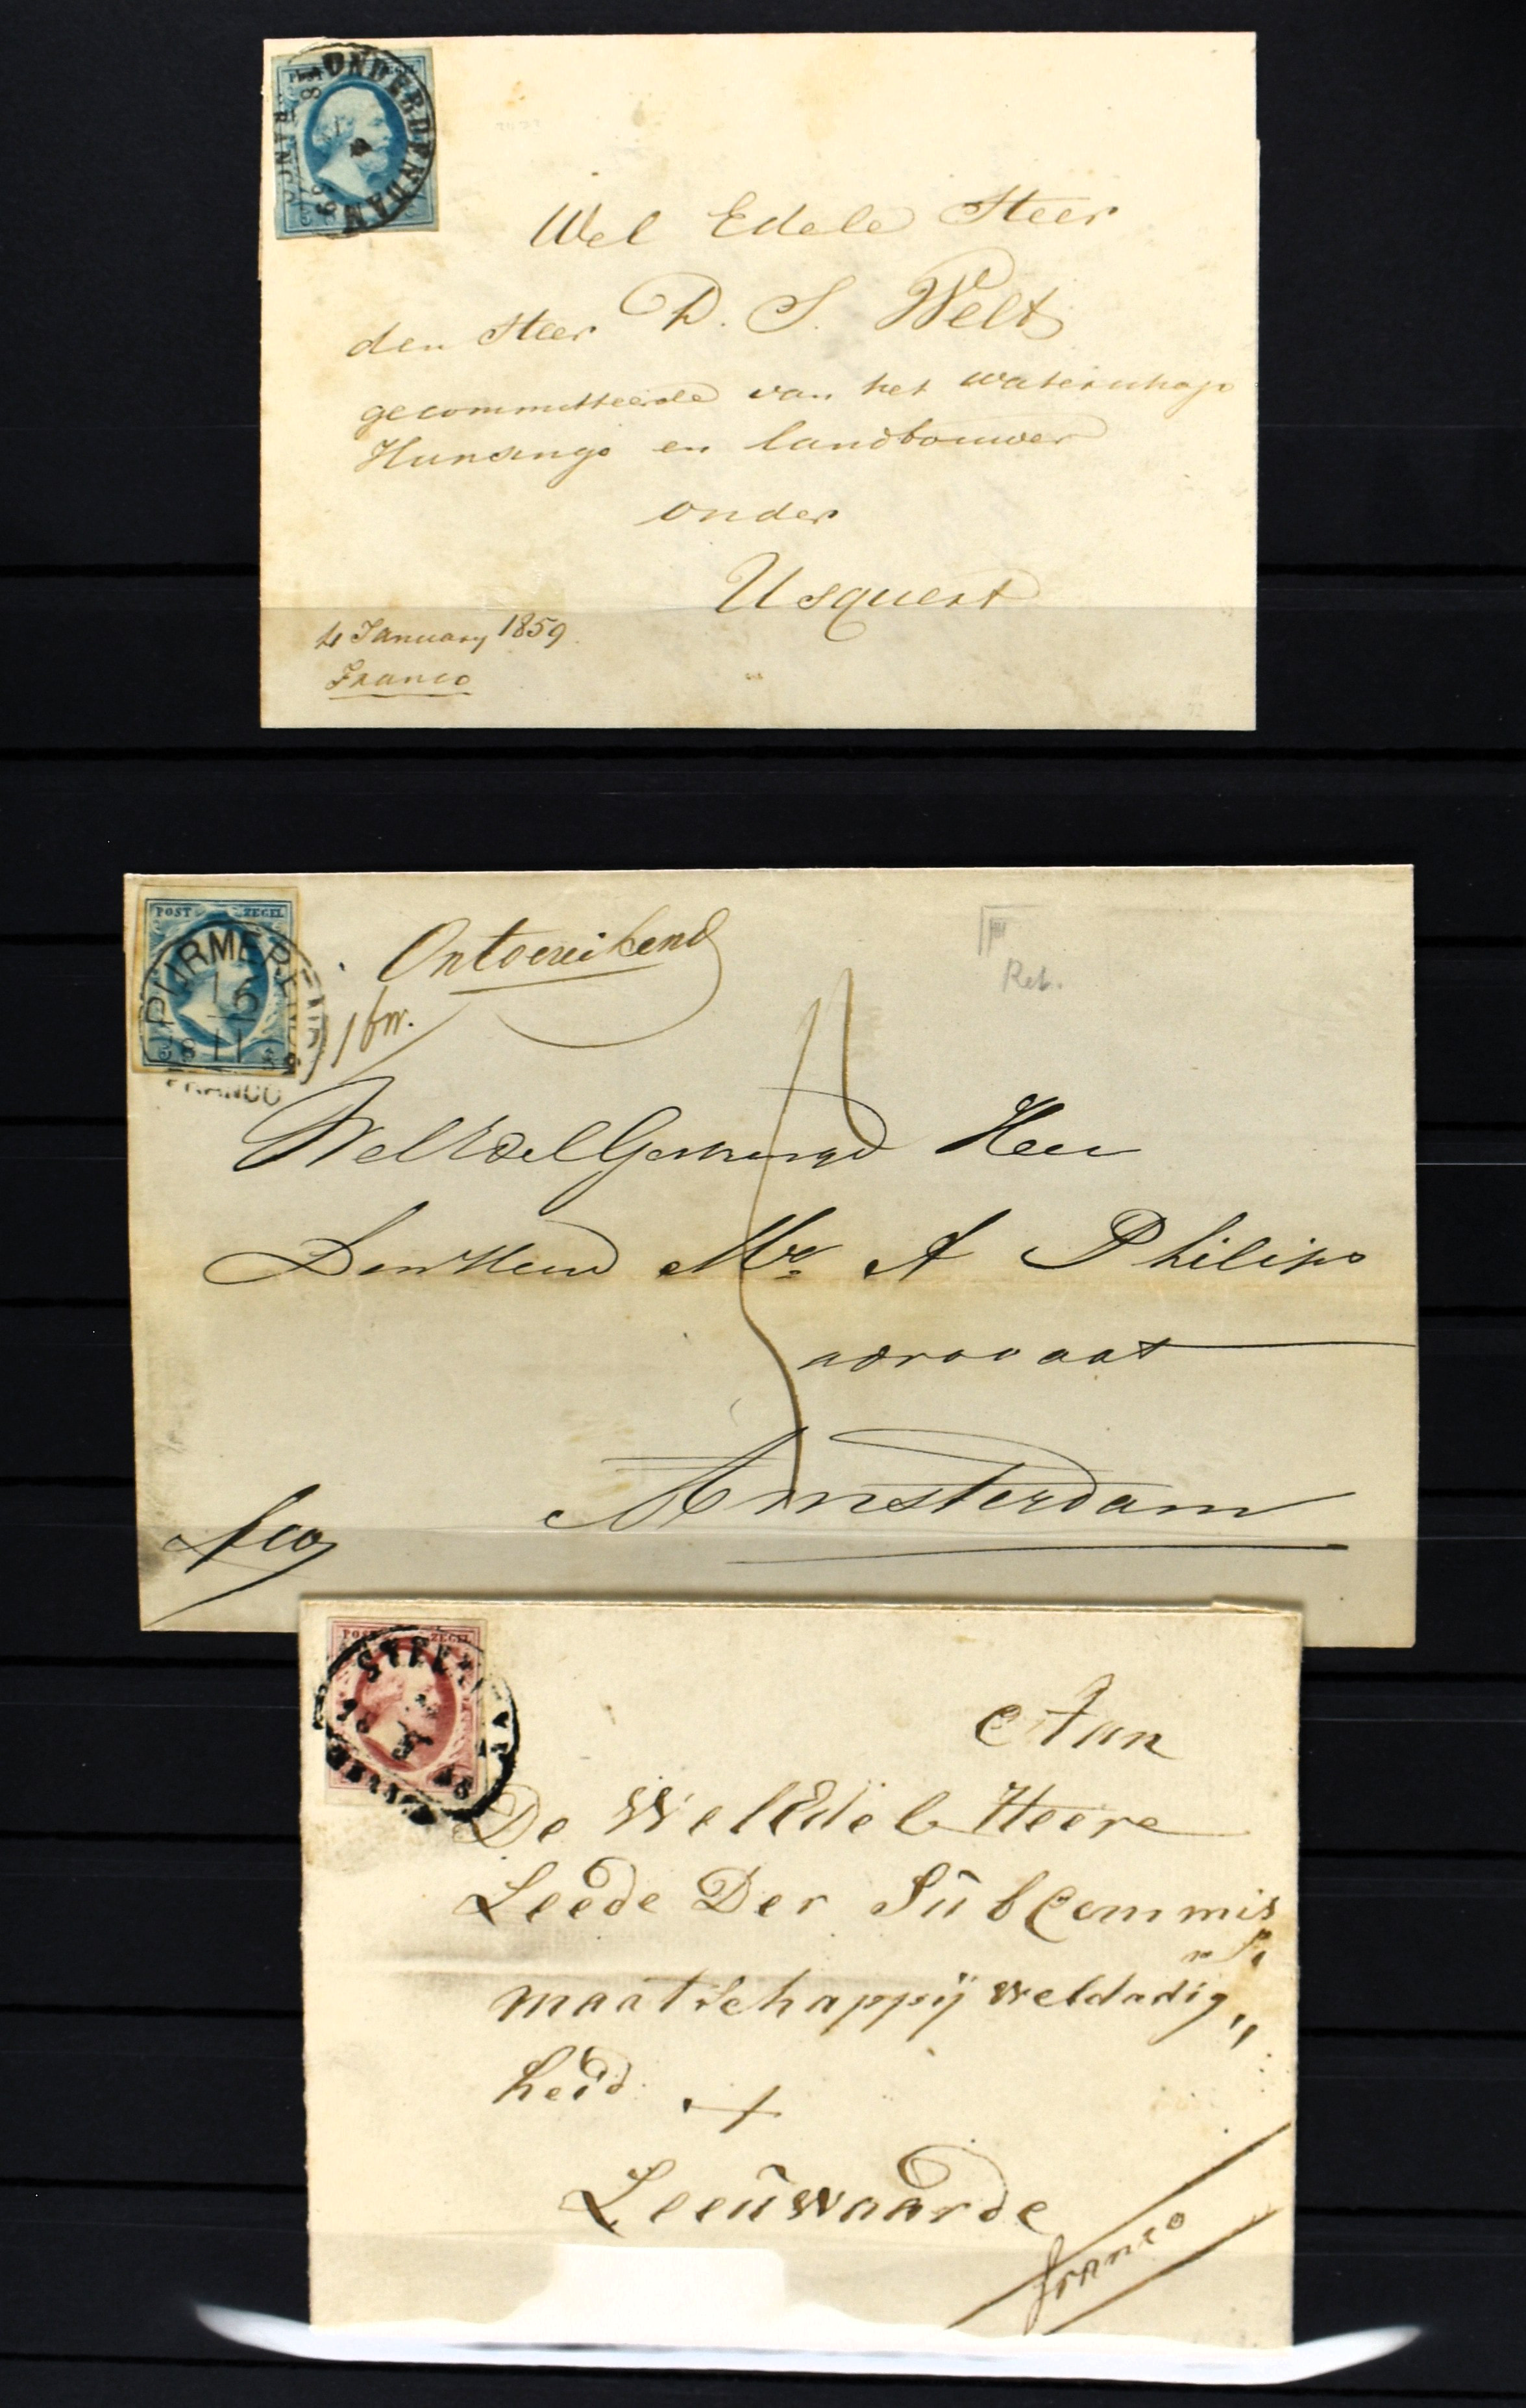 ONDERDENDAM
FRANCO
Wel Edele Heer
den Heer D. S. Welt
gecommitteerde van het waterschap
Hunsingo en landbouwer
onder
Usquert
4 January 1859
Franco
POST ZEGEL
PURMEREND
16
11
FRANCO
Ontoereikend
Ret.
WelEdelGestrenge Heer
Den Heer Mr. A Philips
advocaat
Amsterdam
POST ZEGEL
Aan
De WelEdele Heere
Leede Der Sub Commis
maatschappij weldadig„
heid
Leeuwaarde
franco